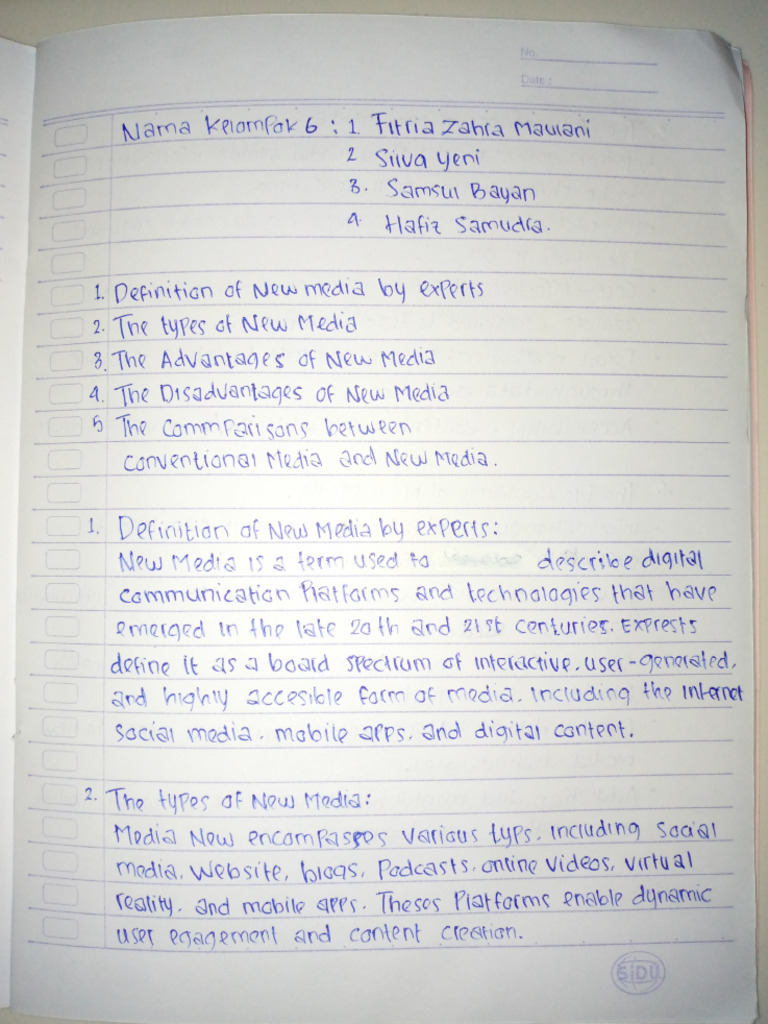 No.
Date:
Nama Kelompok 6 : 1. Fitria Zahra Maulani
2 Silva Yeni
3. Samsul Bayan
4. Hafiz Samudra.
1. Definition of New media by experts
2. The types of New Media
3. The Advantages of New Media
4. The Disadvantages of New Media
5 The Commparisons between
conventional Media and New Media.
1. Definition of New Media by experts:
New Media is a term used to describe digital
communication Platforms and technologies that have
emerged in the late 20th and 21st centuries. Exprests
define it as a board spectrum of interactive, user-generated,
and highly accesible form of media, including the Internet
social media, mobile apps, and digital content.
2. The types of New Media:
Media New encompasses various typs, including social
media, website, blogs, Podcasts, online videos, virtual
reality, and mobile apps. Theses Platforms enable dynamic
user egagement and content creation.
SIDU